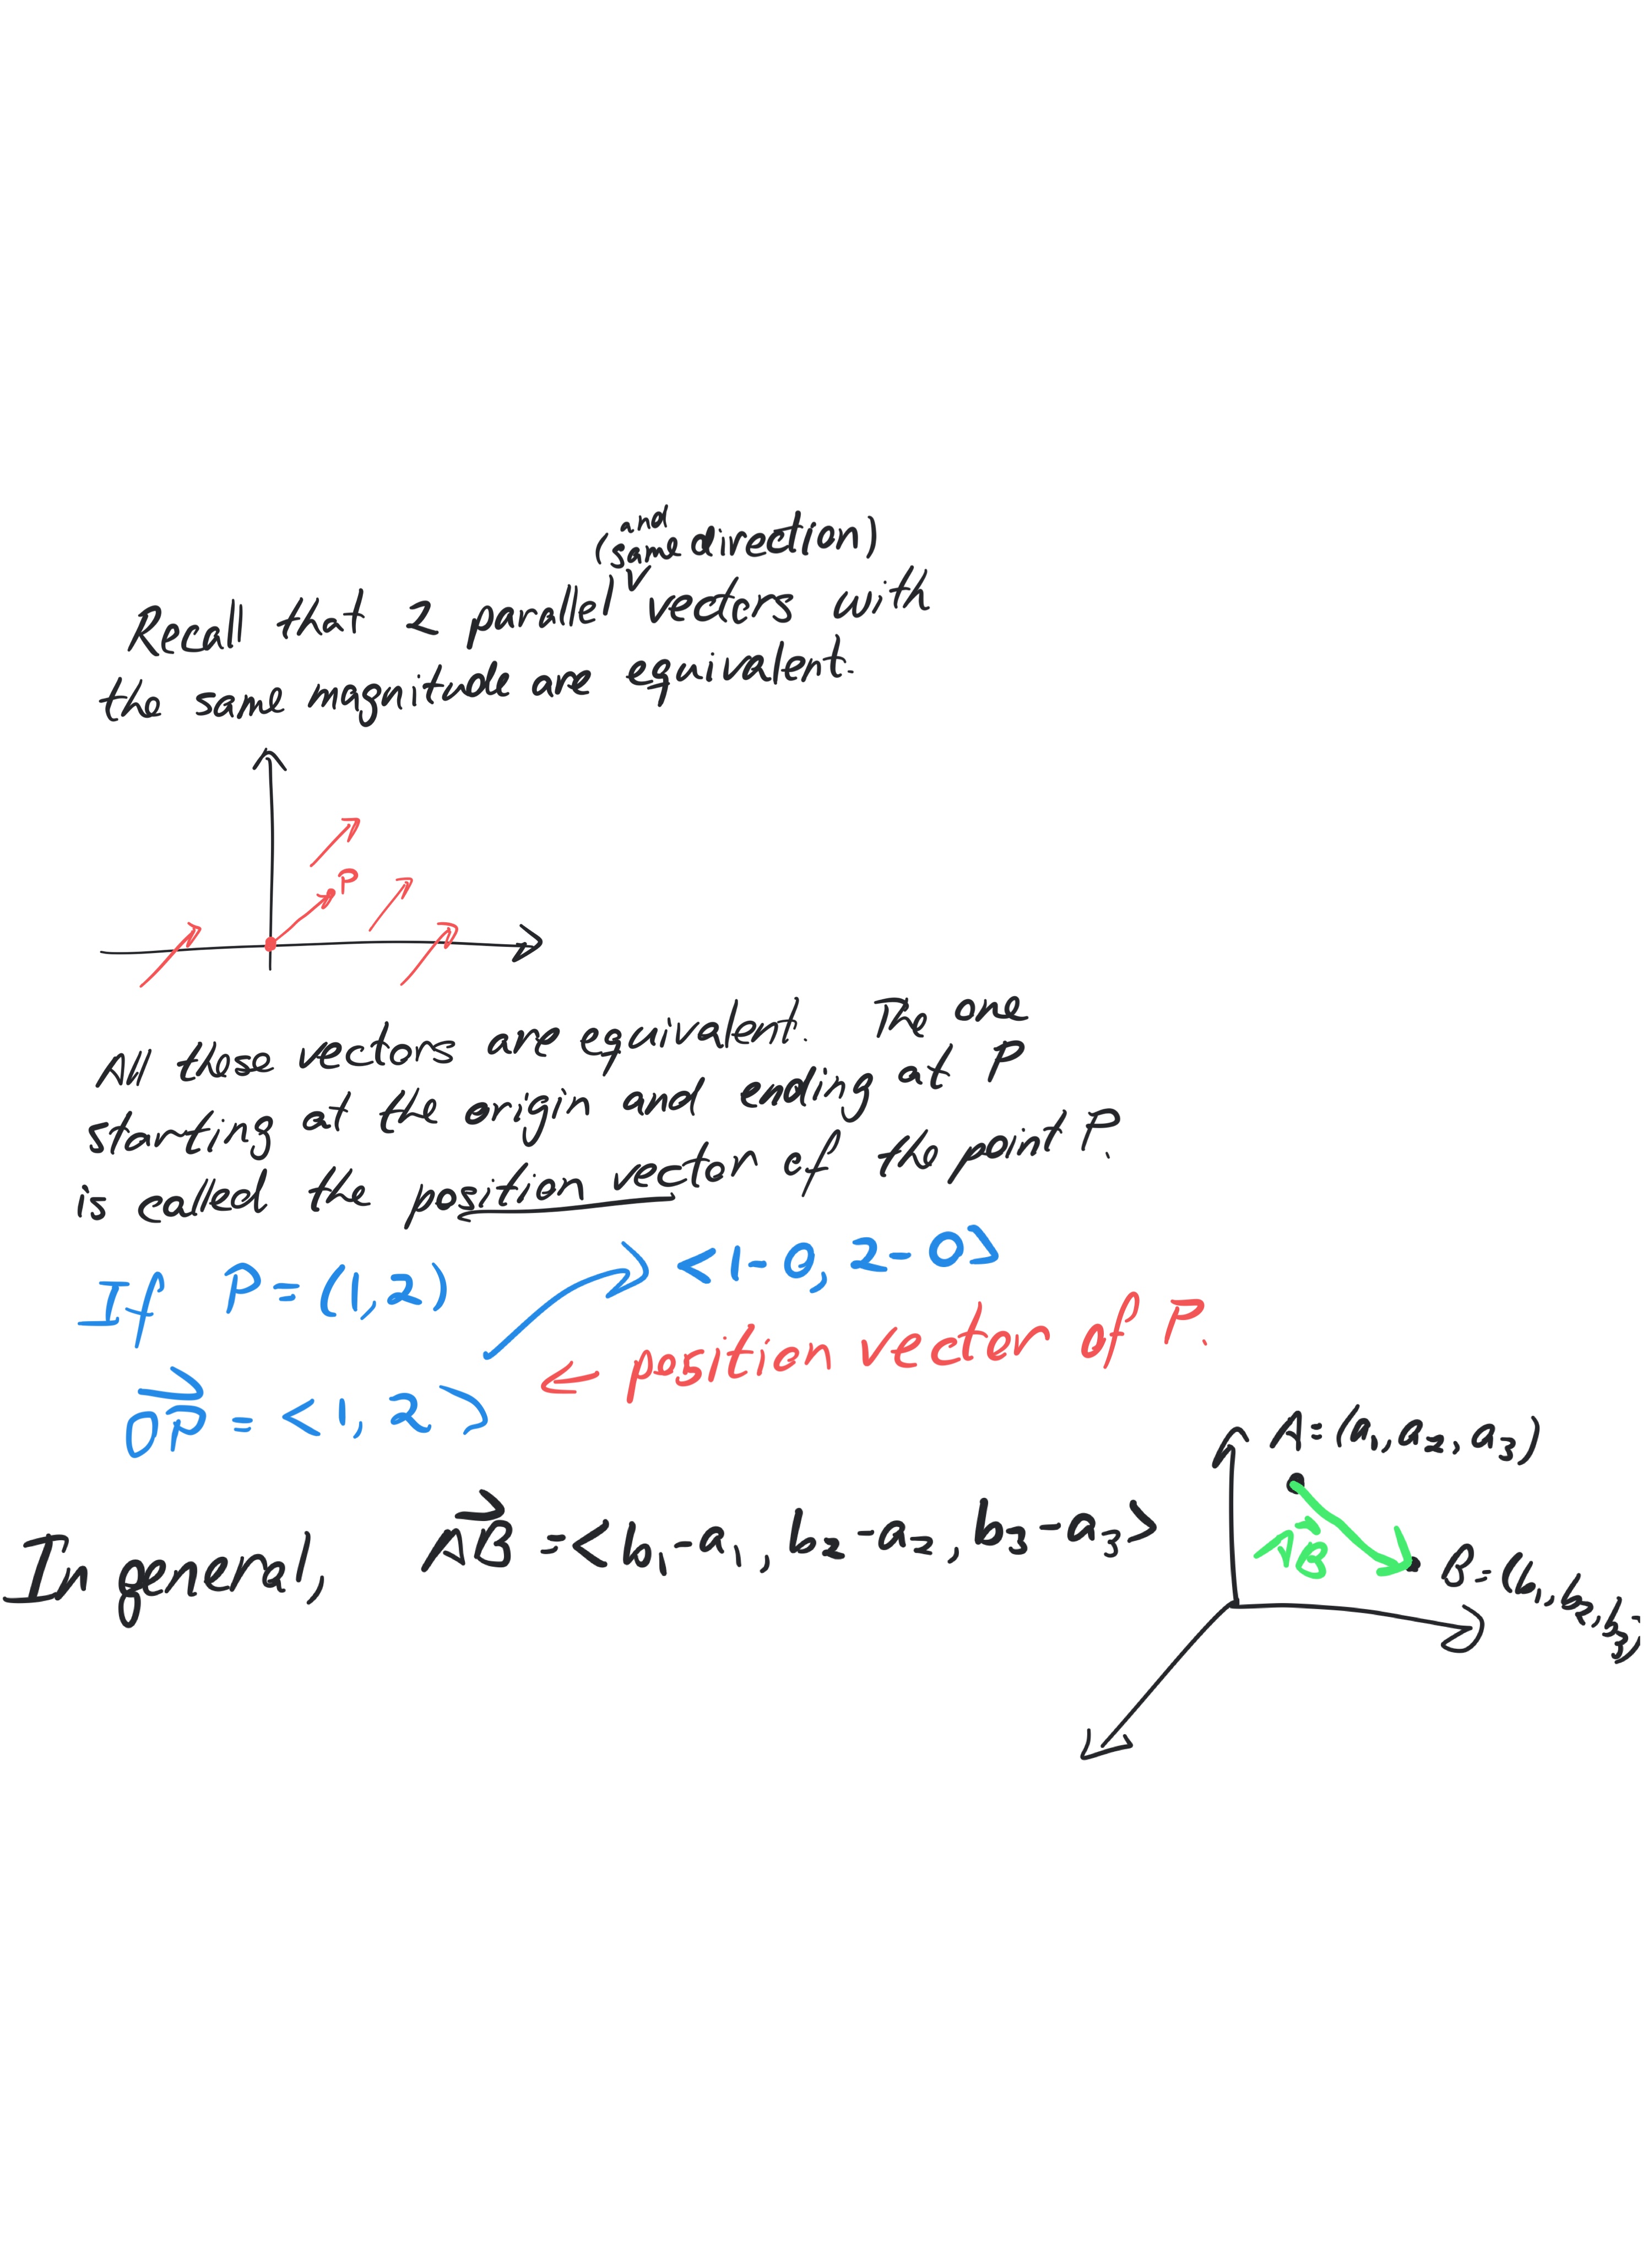 (and same direction)
Recall that 2 parallel vectors with
the same magnitude are equivalent.
P
All these vectors are equivalent. The one
starting at the origin and ending at P
is called the position vector of the point P.
If P = (1,2)
<1-0, 2-0>
OP = <1, 2>
← position vector of P.
A = (a₁, a₂, a₃)
In general, AB = <b₁-a₁, b₂-a₂, b₃-a₃>
AB
B = (b₁, b₂, b₃)